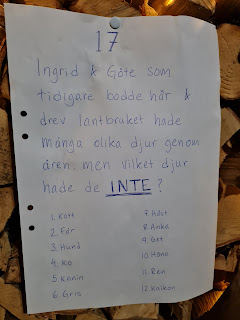 17
Ingrid & Göte som
tidigare bodde här &
drev lantbruket hade
många olika djur genom
åren, men vilket djur
hade de INTE?
1. Katt
2. Får
3. Hund
4. Ko
5. Kanin
6. Gris
7. Häst
8. Anka
9. Get
10. Höna
11. Ren
12. Kalkon